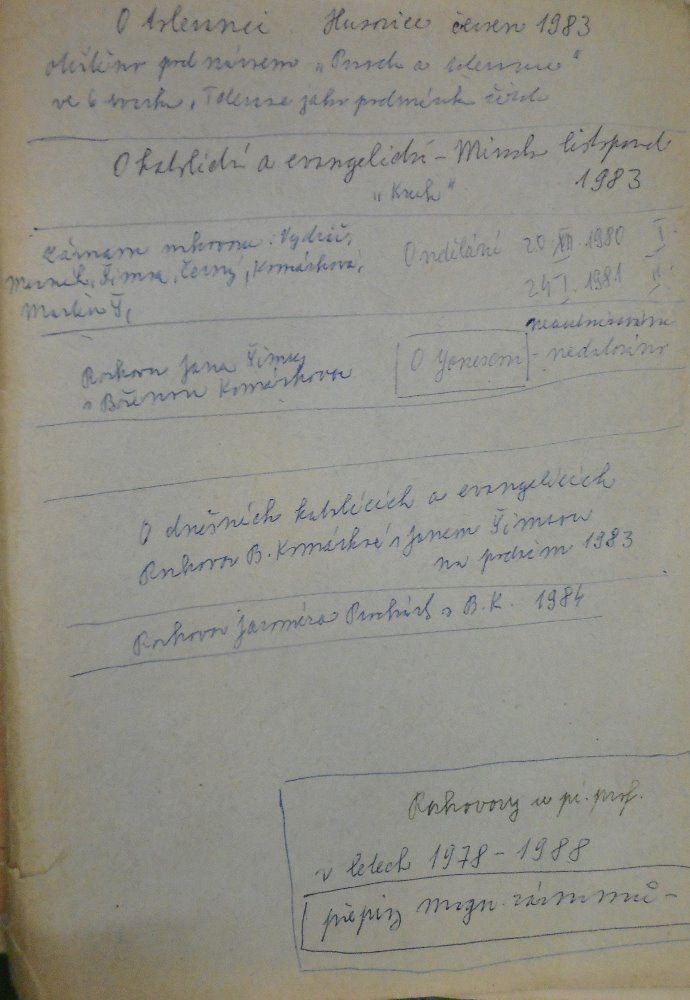 O toleranci Husovice červen 1983
otištěno pod názvem „Pravda a tolerance"
Tolerance jako podmínka
O katolictví a evangelictví - listopad
1983
„Kruh"
Záznam rozhovoru: Vydrář,
Šimsa, Černý, Komárková,
Martin Š,
O vzdělání 20 XII. 1980 I.
24 I. 1981 II.
Rozhovor Jana Šimsy
s Boženou Komárkovou
O Yonesem - nedatováno
O dnešních katolících a evangelících
Rozhovor B. Komárkové s Janem Šimsou
na podzim 1983
Rozhovor Jaromíra Procházky s B.K. 1984
Rozhovory u pí. prof.
v letech 1978 - 1988
přepisy mgn. záznamů -